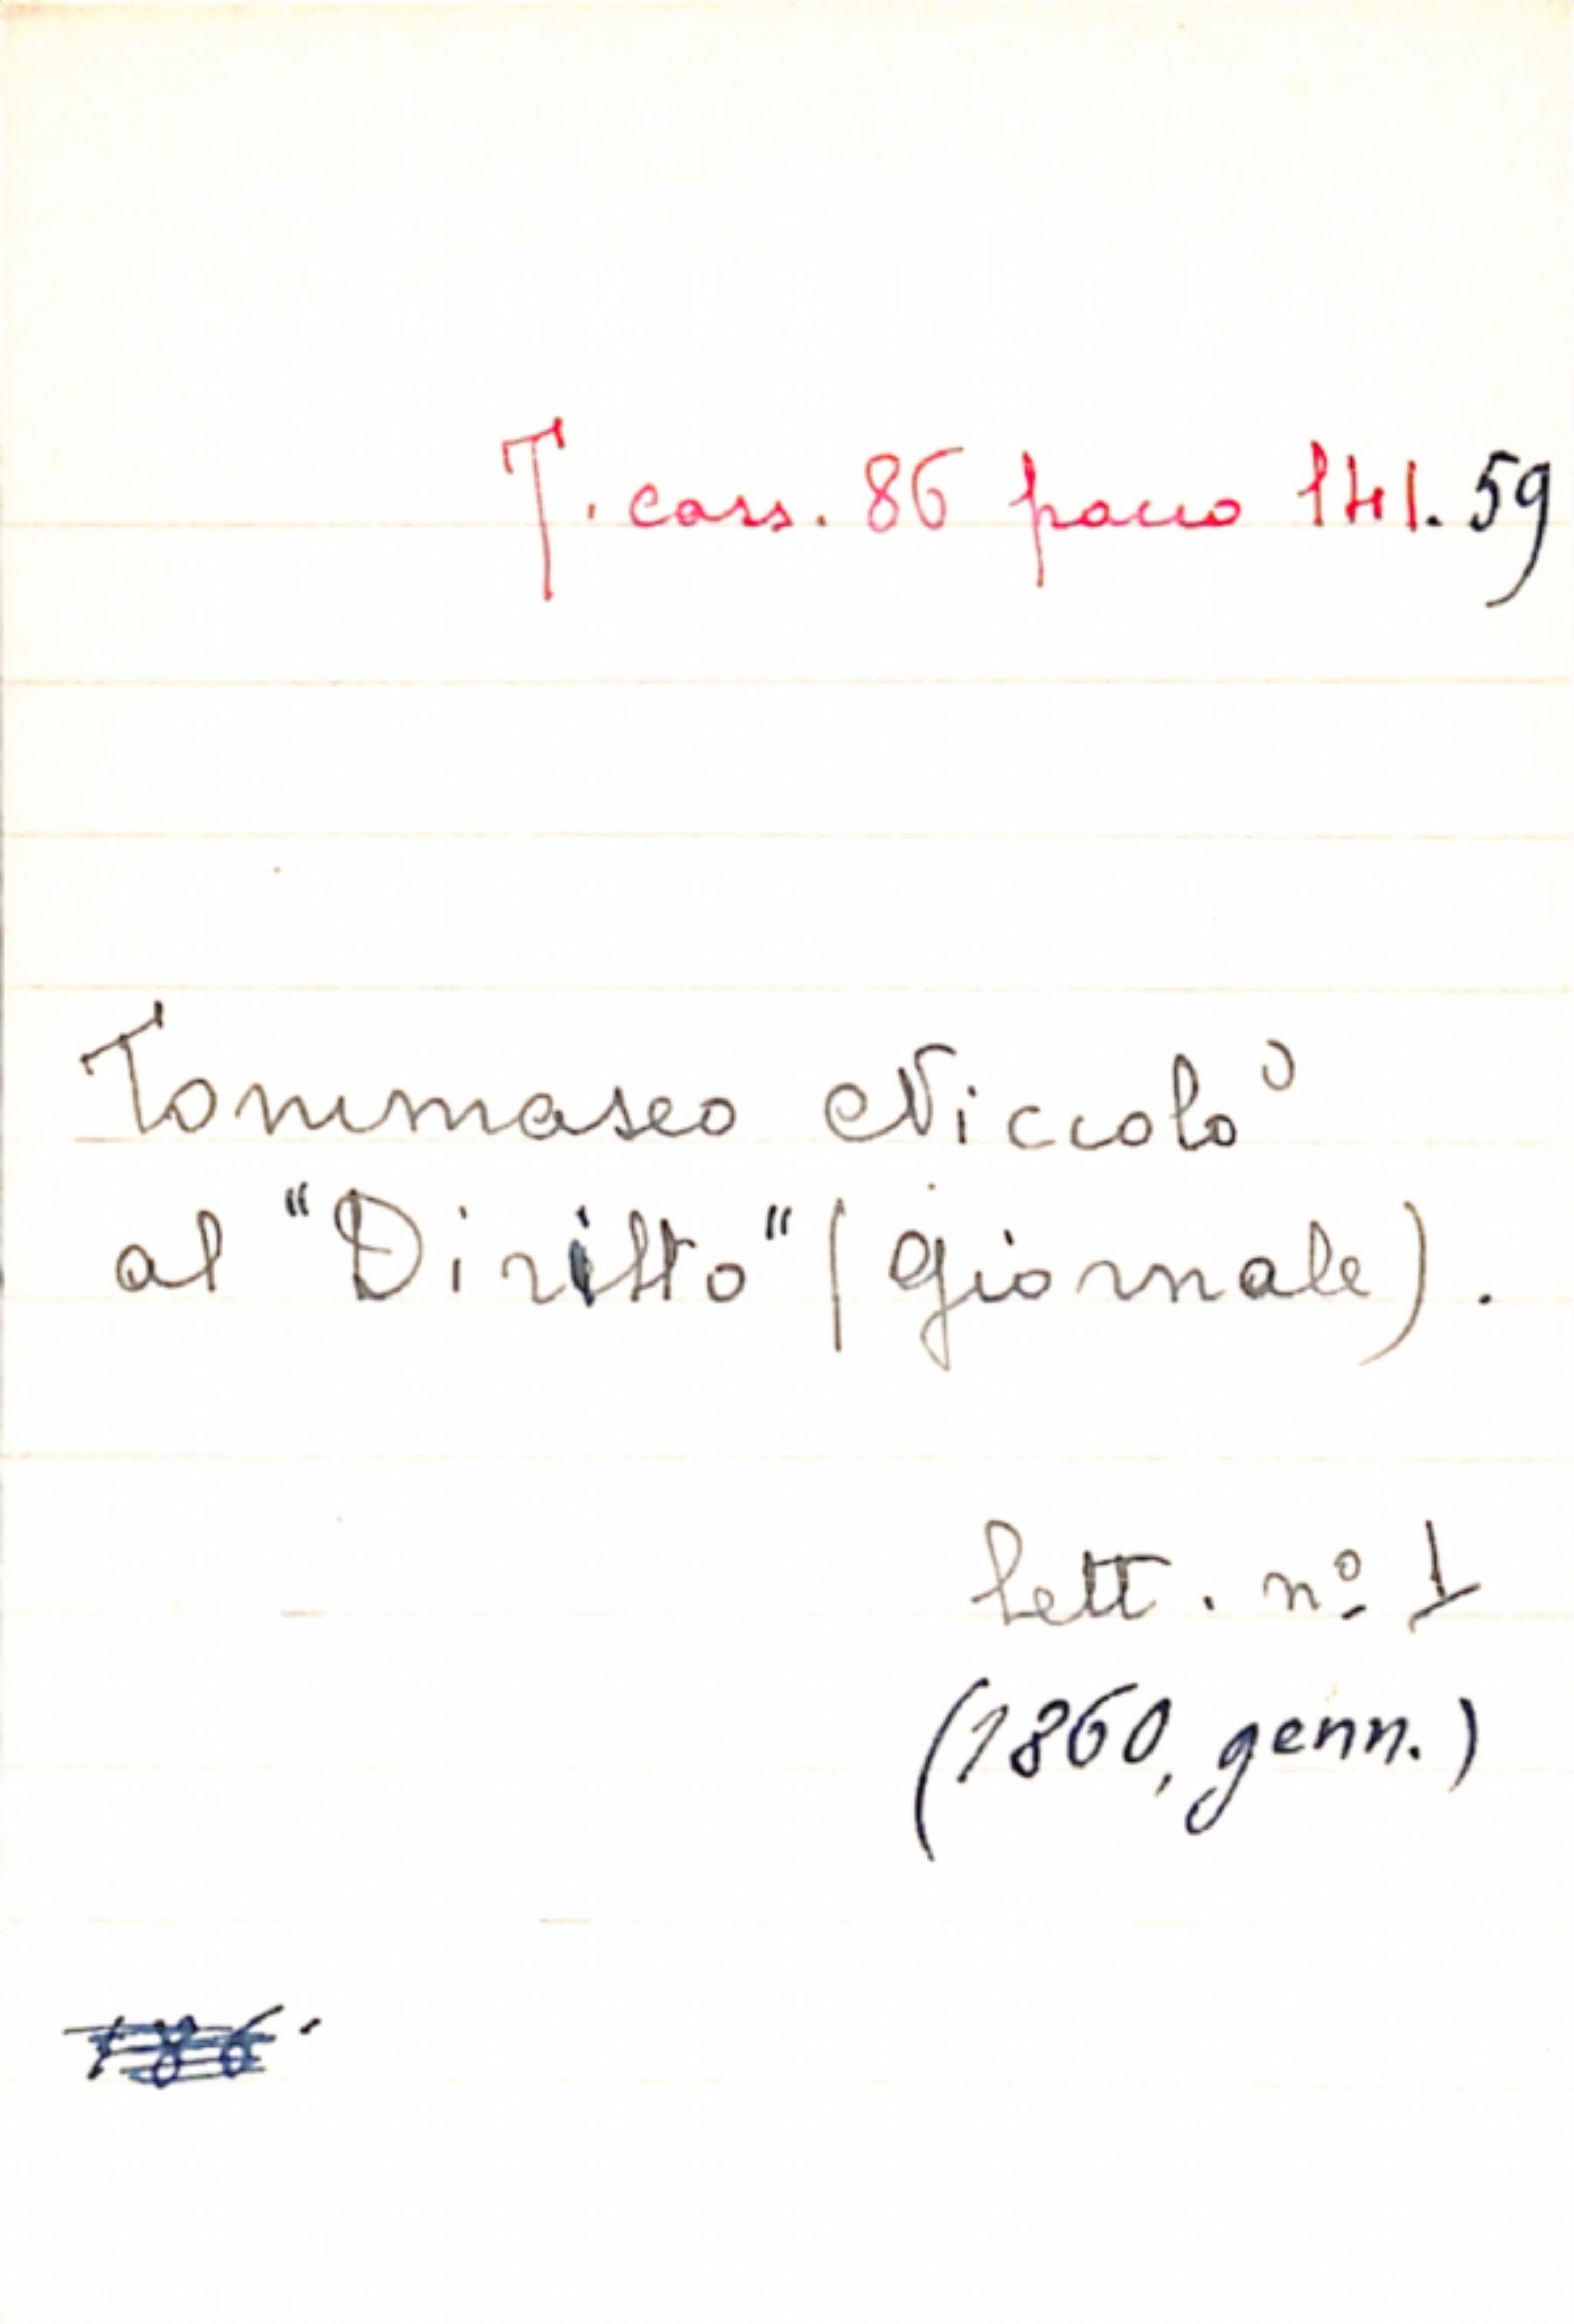 T. cass. 86 pacco 141.59
Tommaseo Niccolò
al "Diritto" (giornale).
lett. nº 1
(1860, genn.)